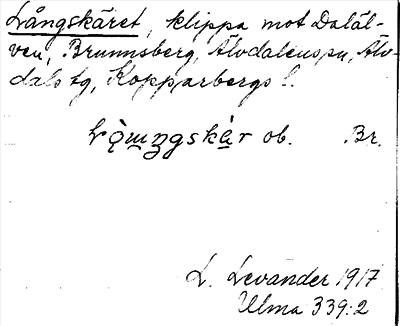 Långskäret, klippa mot Daläl-
ven, Brunnsberg, Älvdalens sn, Älv-
dals tg, Kopparbergs l.
ob. Br.
L. Levander 1917
Ulma 339:2